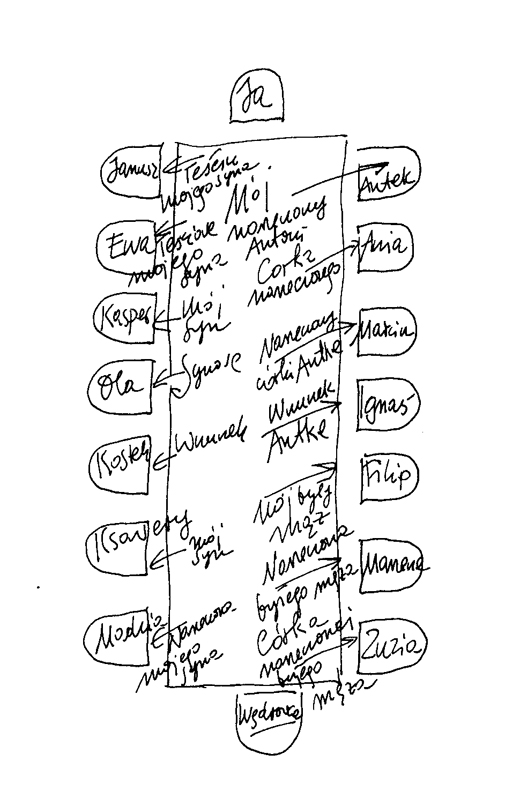 Ja
Janusz
Teściu
mojego syna
Ewa
Teściowe
mojego
syna
Kasper
Mój
syn
Ola
Synowe
Kostek
Wnunek
Ksawery
Mój
syn
Madzia
Narzeczona
mojego
syna
Antek
Mój
narzeczony
Antoni
Ania
Córka
narzeczonego
Marcin
Narzeczony
córki Antka
Ignaś
Wnunek
Antka
Filip
Mój były
mąż
Marzena
Narzeczona
byłego męża
Zuzia
Córka
narzeczonej
byłego
męża